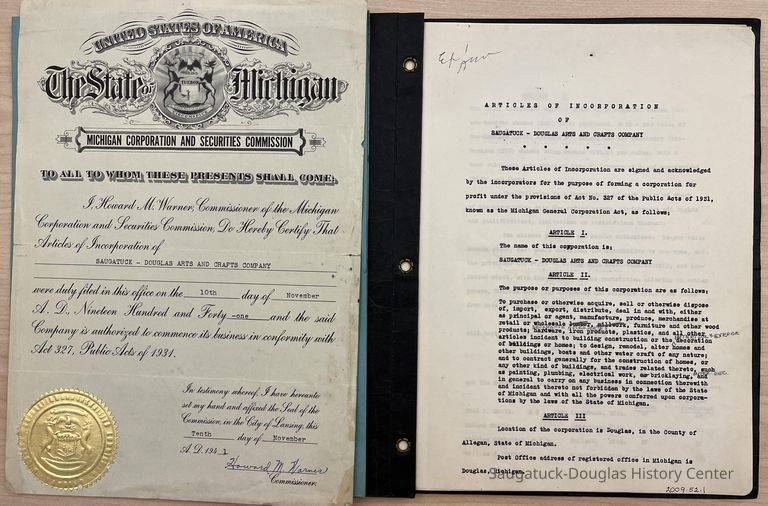 UNITED STATES OF AMERICA
The State of Michigan
TUEBOR
MICHIGAN CORPORATION AND SECURITIES COMMISSION
TO ALL TO WHOM THESE PRESENTS SHALL COME:
I, Howard M. Warner, Commissioner of the Michigan
Corporation and Securities Commission, Do Hereby Certify That
Articles of Incorporation of
SAUGATUCK - DOUGLAS ARTS AND CRAFTS COMPANY
were duly filed in this office on the 10th day of November
A. D. Nineteen Hundred and Forty -one and the said
Company is authorized to commence its business in conformity with
Act 327, Public Acts of 1931.
In testimony whereof, I have hereunto
set my hand and affixed the Seal of the
Commission, in the City of Lansing, this
Tenth day of November
A. D. 194 1
Howard M. Warner
Commissioner.
ARTICLES OF INCORPORATION
OF
SAUGATUCK - DOUGLAS ARTS AND CRAFTS COMPANY
* * * * *
These Articles of Incorporation are signed and acknowledged
by the incorporators for the purpose of forming a corporation for
profit under the provisions of Act No. 327 of the Public Acts of 1931,
known as the Michigan General Corporation Act, as follows;
ARTICLE I.
The name of this corporation is;
SAUGATUCK - DOUGLAS ARTS AND CRAFTS COMPANY
ARTICLE II.
The purpose or purposes of this corporation are as follows:
To purchase or otherwise acquire, sell or otherwise dispose
of, import, export, distribute, deal in and with, either
as principal or agent, manufacture, produce, merchandise at
retail or wholesale lumber, millwork, furniture and other wood
products; hardware, iron products, plastics, and all other
articles incident to building construction or the decoration
of buildings or homes; to design, remodel, alter homes and
other buildings, boats and other water craft of any nature;
and to contract generally for the construction of homes, or
any other kind of buildings, and trades related thereto, such
as painting, plumbing, electrical work, bricklaying, and
in general to carry on any business in connection therewith
and incident thereto not forbidden by the laws of the State
of Michigan and with all the powers conferred upon corpora-
tions by the laws of the State of Michigan.
ARTICLE III
Location of the corporation is Douglas, in the County of
Allegan, State of Michigan.
Post Office address of registered office in Michigan is
Douglas, Michigan.
Saugatuck-Douglas History Center
2009.52.1